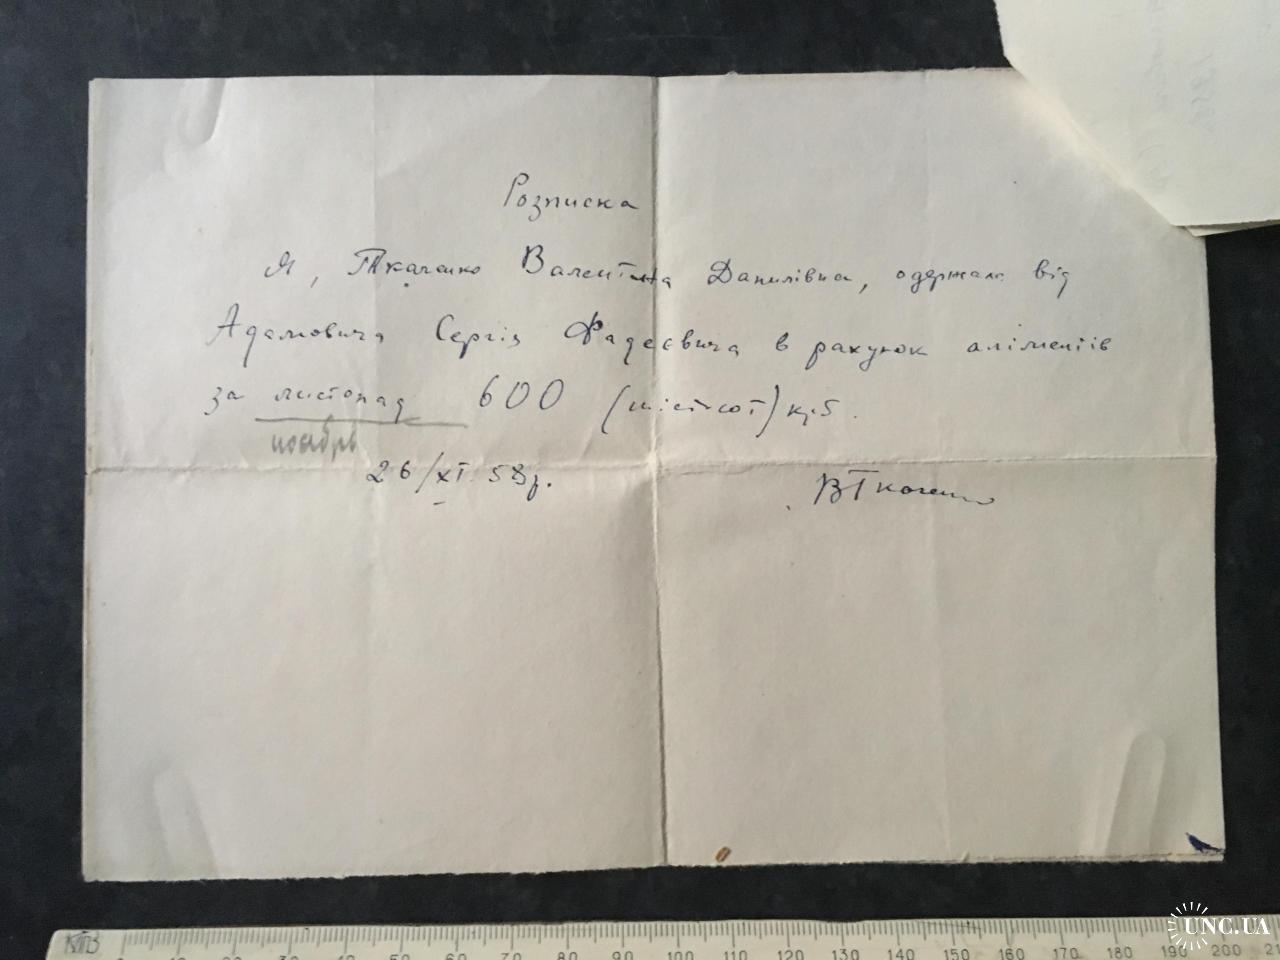 Розписка
Я, Ткаченко Валентина Данилівна, одержала від
Адамовича Сергія Фадеєвича в рахунок аліментів
за листопад 600 (шістсот) крб.
ноябрь
26/XI 58р.
ВТкаченко
КТПЗ
10 20 30 40 50 60 70 80 90 100 110 120 130 140 150 160 170 180 190 200 21
UNC.UA